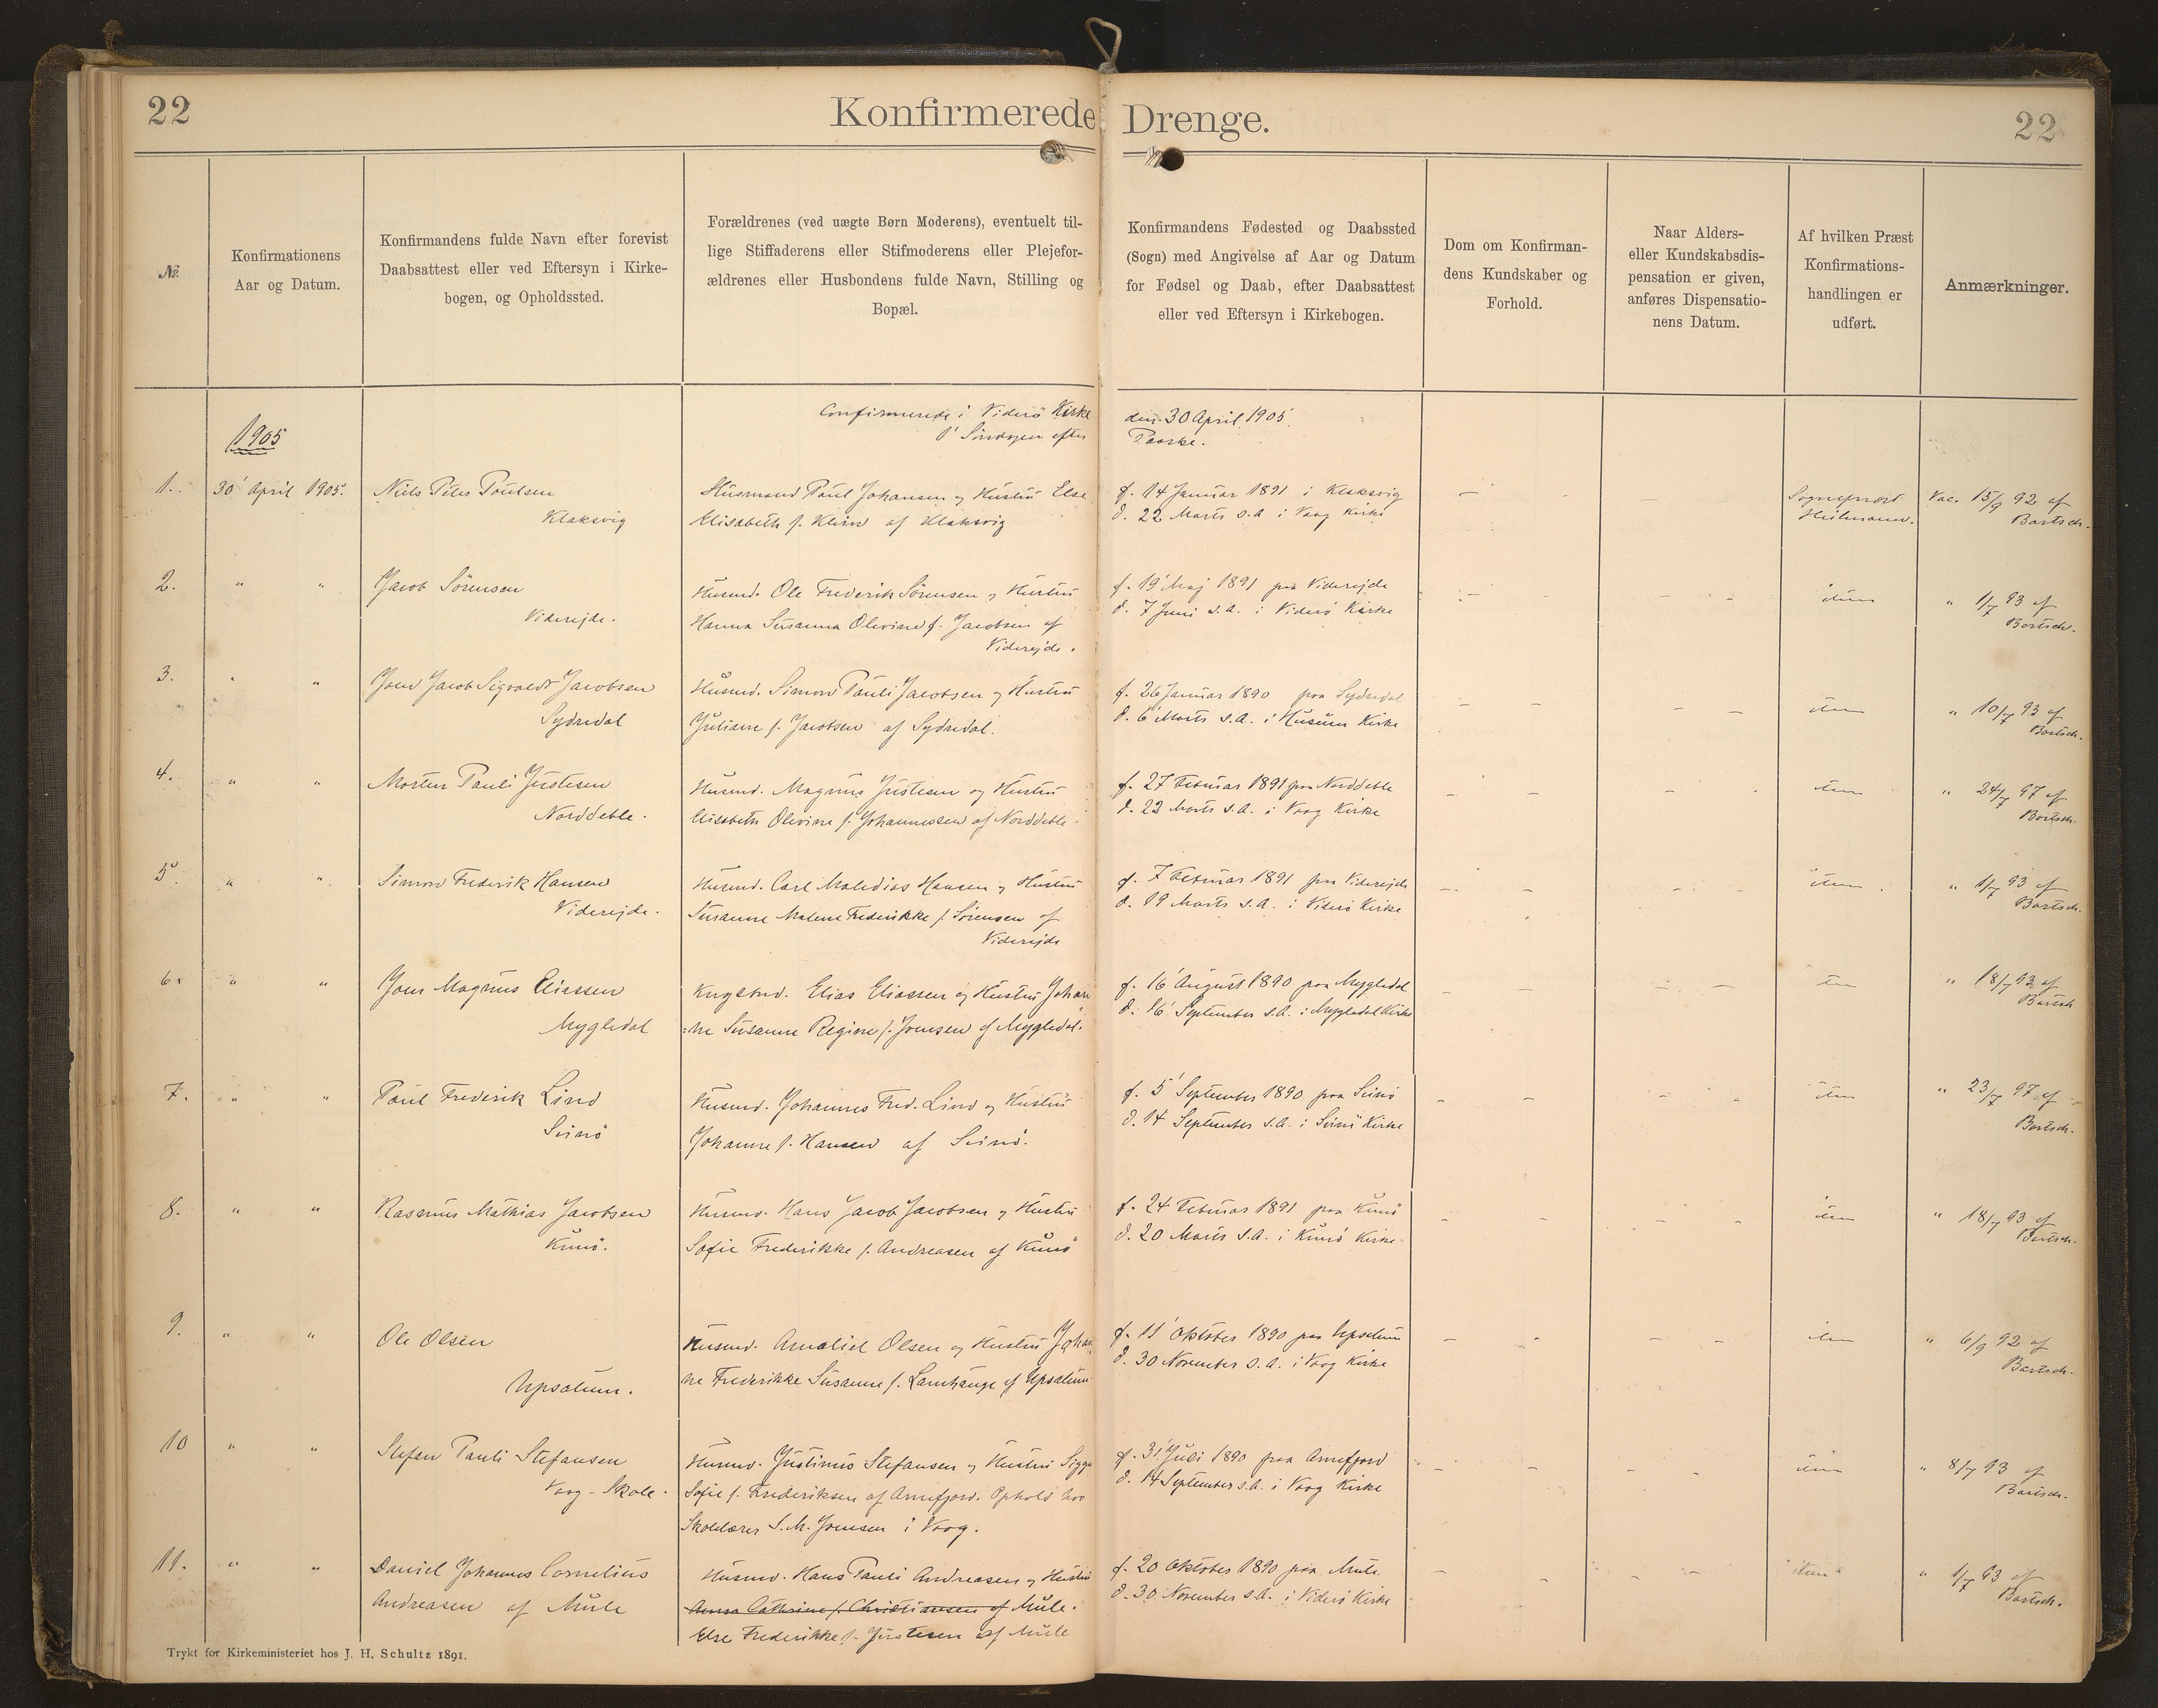 22
Konfirmerede Drenge.
22
№
Konfirmationens
Aar og Datum.
Konfirmandens fulde Navn efter forevist
Daabsattest eller ved Eftersyn i Kirke-
bogen, og Opholdssted.
Forældrenes (ved uægte Børn Moderens), eventuelt til-
lige Stiffaderens eller Stifmoderens eller Plejefor-
ældrenes eller Husbondens fulde Navn, Stilling og
Bopæl.
Konfirmandens Fødested og Daabssted
(Sogn) med Angivelse af Aar og Datum
for Fødsel og Daab, efter Daabsattest
eller ved Eftersyn i Kirkebogen.
Dom om Konfirman-
dens Kundskaber og
Forhold.
Naar Alders-
eller Kundskabsdis-
pensation er given,
anføres Dispensatio-
nens Datum.
Af hvilken Præst
Konfirmations-
handlingen er
udført.
Anmærkninger.
1905
Confirmerede i Viderö Kirke den 30 April 1905.
1' Söndagen efter Paaske.
1. 30' April 1905.
Niels Peter Poulsen
Klaksvig
Husmand Poul Johansen og Hustru Else
Elisabeth f. Klein af Klaksvig
f. 14 Januar 1891 i Klaksvig
d. 22 Marts s.a. i Vaag Kirke
Sognepræst
Heilmann.
Vac. 15/9 92 af
Bartsch.
2. " "
Jacob Sörensen
Viderejde.
Husmd. Ole Frederik Sörensen og Hustru
Hanna Susanna Olevine f. Jacobsen af
Viderejde.
f. 19' Maj 1891 paa Viderejde
d. 7 Juni s.a. i Viderö Kirke
item
" 1/7 93 af
Bartsch.
3. " "
Joen Jacob Sigvald Jacobsen
Sydredal
Husmd. Simon Pauli Jacobsen og Hustru
Juliane f. Jacobsen af Sydredal.
f. 26 Januar 1890 paa Sydredal
d. 6' Marts s.a. i Husum Kirke
item
" 10/7 93 af
Bartsch.
4. " "
Morten Pauli Justesen
Norddeble.
Husmd. Magnus Justesen og Hustru
Elisabeth Olevine f. Johannesen af Norddeble.
f. 27 Februar 1891 paa Norddeble
d. 22 Marts s.a. i Vaag Kirke
item
" 24/7 97 af
Bartsch.
5. " "
Simon Frederik Hansen
Viderejde.
Husmd. Carl Malidias Hansen og Hustru
Susanne Malene Frederikke f. Sörensen af
Viderejde
f. 7 Februar 1891 paa Viderejde
d. 19 Marts s.a. i Viderö Kirke
item.
" 1/7 93 af
Bartsch.
6. " "
Joen Magnus Eliassen
Mygledal
Kngsbnd. Elias Eliassen og Hustru Johan
:ne Susanne Regine f. Joensen af Mygledal.
f. 16' August 1890 paa Mygledal
d. 16' September s.a. i Mygledal Kirke
item
" 18/7 93 af
Bartsch
7. " "
Poul Frederik Lind
Svinö
Husmd. Johannes Fred. Lind og Hustru
Johanne f. Hansen af Svinö.
f. 5' September 1890 paa Svinö
d. 14 September s.a. i Svinö Kirke
item
" 23/7 97 af
Bartsch.
8. " "
Rasmus Mathias Jacobsen
Kunö.
Husmd. Hans Jacob Jacobsen og Hustru
Sofie Frederikke f. Andreasen af Kunö
f. 24 Februar 1891 paa Kunö
d. 20 Marts s.a. i Kunö Kirke.
item
" 18/7 93 af
Bartsch.
9. " "
Ole Olsen
Upsalum.
Husmd. Amaliel Olsen og Hustru Johan
ne Frederikke Susanne f. Lamhauge af Upsalum
f. 11' Oktober 1890 paa Upsalum
d. 30 November s.a. i Vaag Kirke
item
" 6/9 92 af
Bartsch.
10 " "
Stefan Pauli Stefansen
Vaag - Skole.
Husmd. Justinus Stefansen og Hustru Sigga
Sofie f. Frederiksen af Arnefjord. Ophold hos
Skolelærer S. M. Joensen i Vaag.
f. 31' Juli 1890 paa Arnefjord
d. 14 September s.a. i Vaag Kirke
item
" 8/7 93 af
Bartsch.
11. " "
Daniel Johannes Cornelius
Andreasen af Mule
Husmd. Hans Pauli Andreasen og Hustru
Anna Cathrine f. Christiansen af Mule.
Else Frederikke f. Justesen af Mule
f. 20 Oktober 1890 paa Mule
d. 30 November s.a. i Viderö Kirke
item
" 1/7 93 af
Bartsch.
Trykt for Kirkeministeriet hos J. H. Schultz 1891.